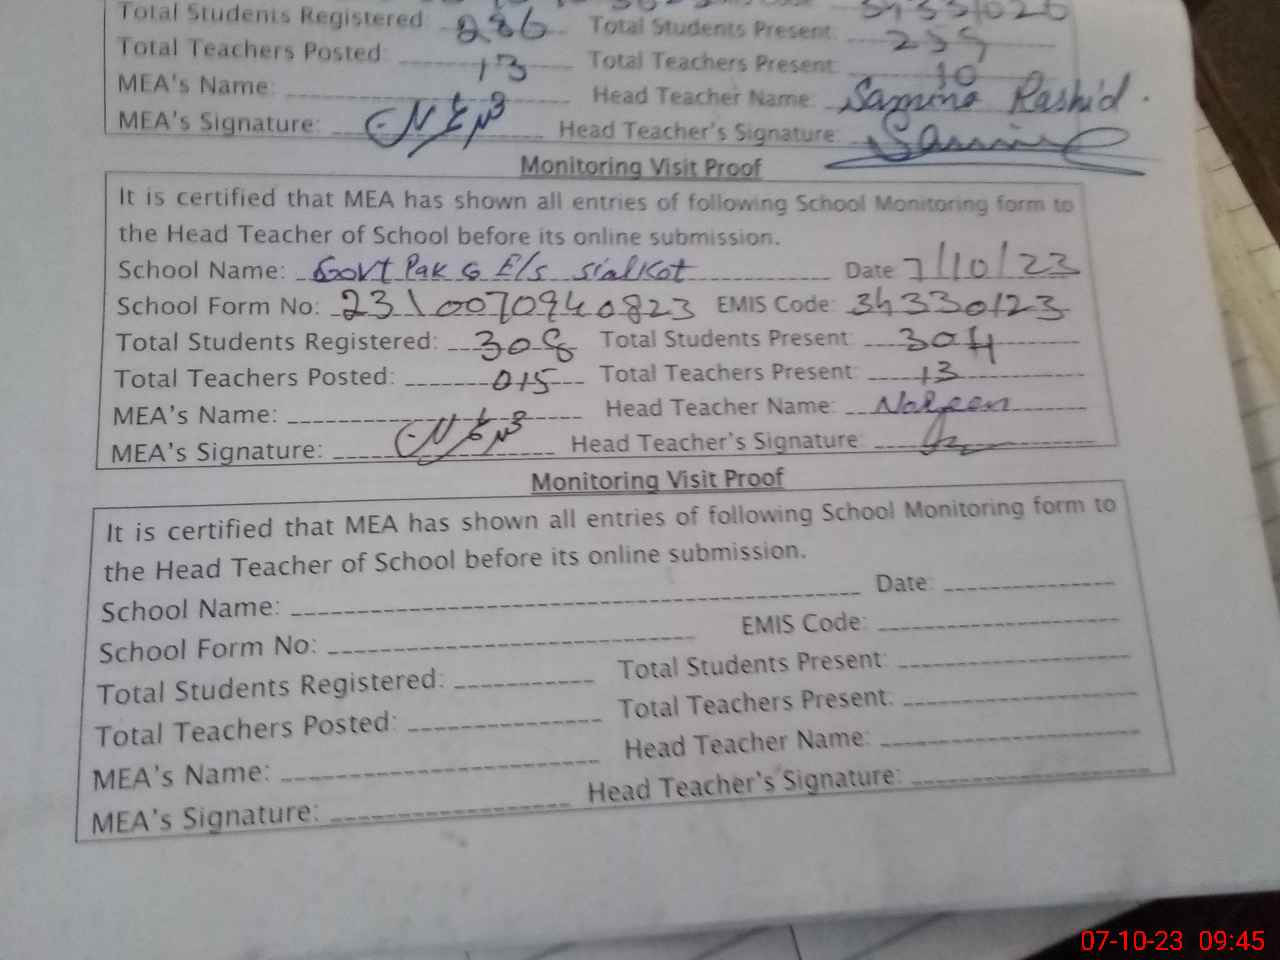 Total Students Registered: 286 Total Students Present: 259
Total Teachers Posted: 13 Total Teachers Present: 10
MEA's Name: Head Teacher Name: Samina Rashid.
MEA's Signature: Head Teacher's Signature:
Monitoring Visit Proof
It is certified that MEA has shown all entries of following School Monitoring form to
the Head Teacher of School before its online submission.
School Name: Govt Pak G E/S Sialkot Date 7/10/23
School Form No: 2310070940823 EMIS Code: 34330123
Total Students Registered: 308 Total Students Present: 304
Total Teachers Posted: 015 Total Teachers Present: 13
MEA's Name: Head Teacher Name: Nasreen
MEA's Signature: Head Teacher's Signature:
Monitoring Visit Proof
It is certified that MEA has shown all entries of following School Monitoring form to
the Head Teacher of School before its online submission.
School Name: Date:
School Form No: EMIS Code:
Total Students Registered: Total Students Present:
Total Teachers Posted: Total Teachers Present:
MEA's Name: Head Teacher Name:
MEA's Signature: Head Teacher's Signature:
07-10-23 09:45